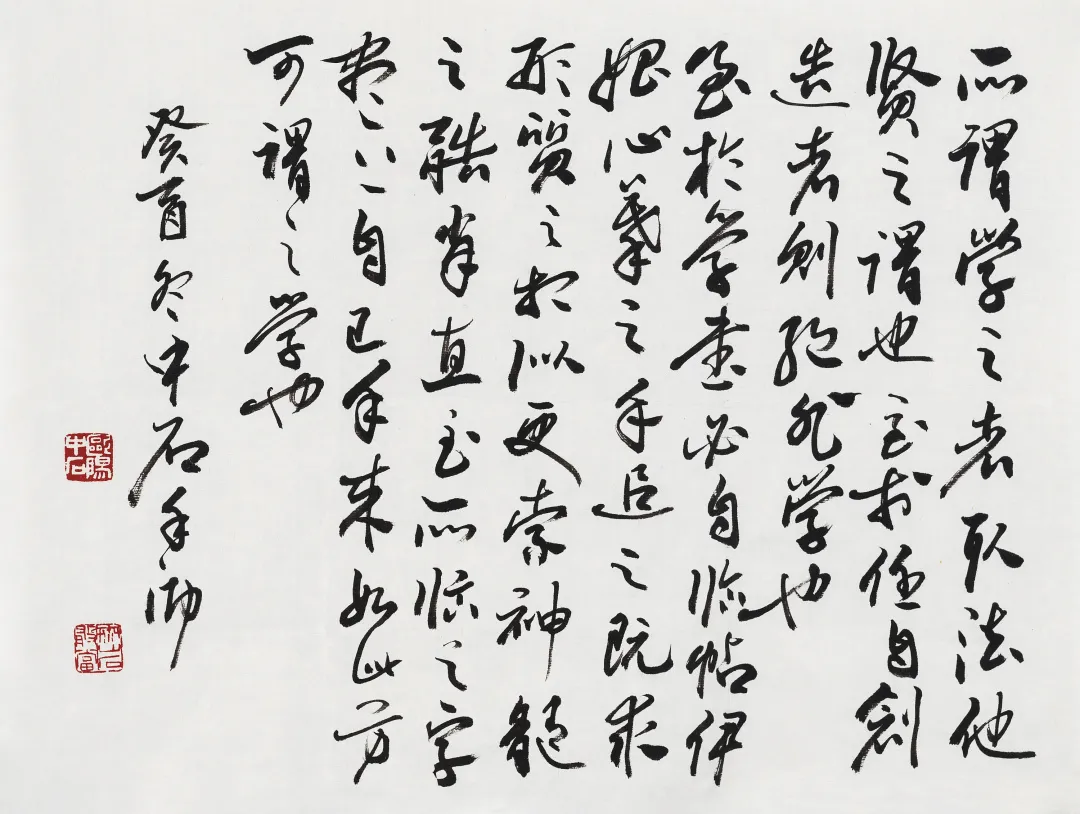 所謂學之者取法他
賢之謂也至於任自創
造者則絕非學也
至於學書必自臨帖伊
始心摹之手追之既求
形質之相似更索神髓
之酷肖直至所臨之字
自己手來如此方
可謂之學也
癸酉冬中石手泐
歐陽中石